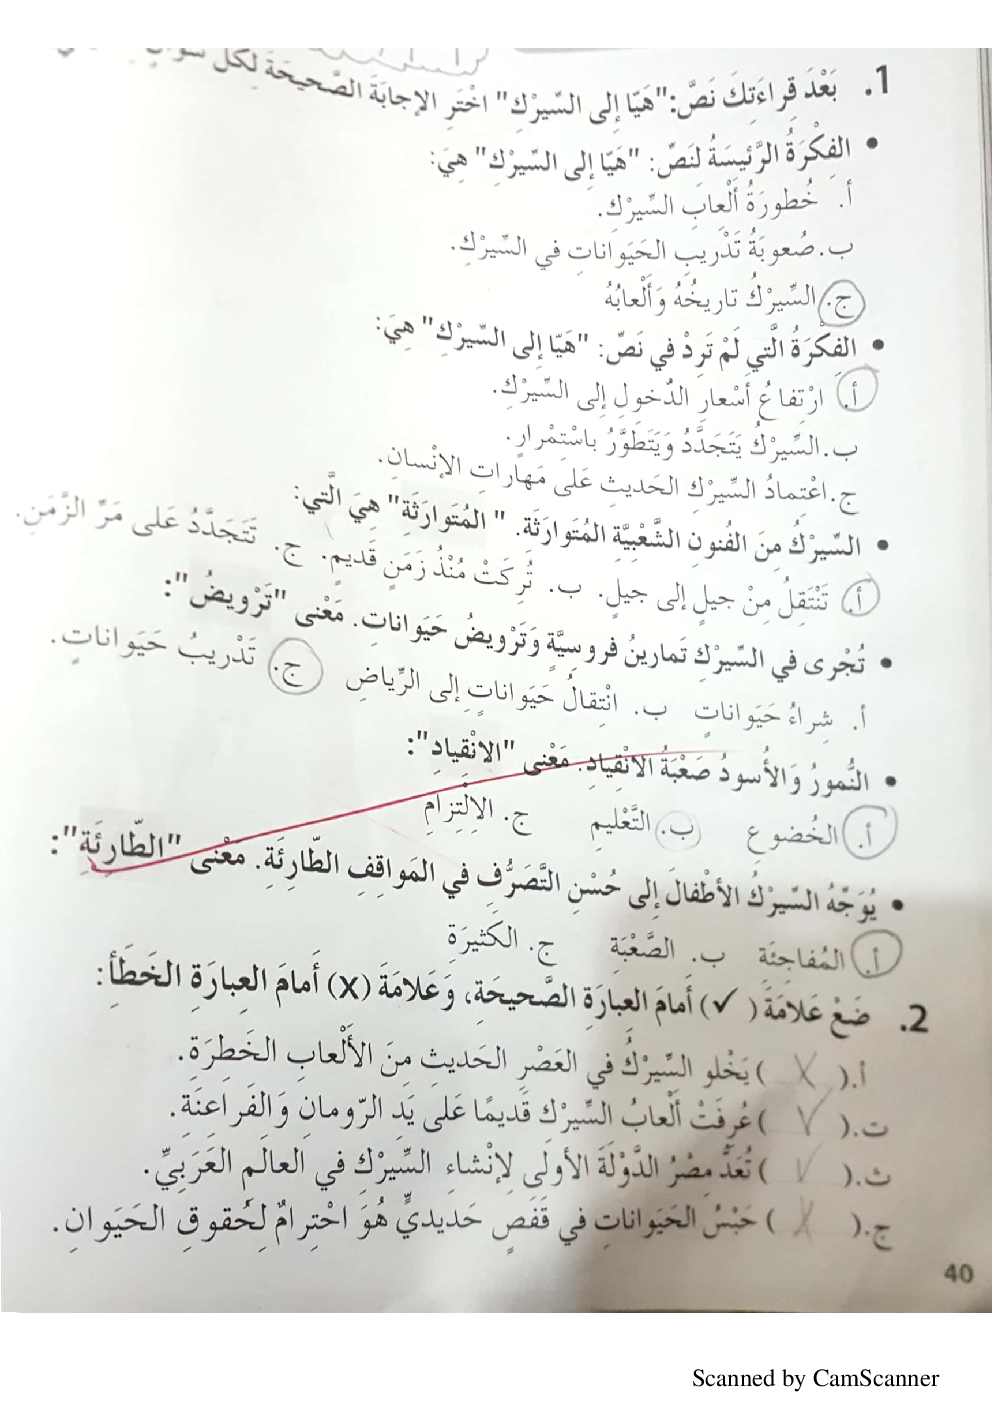 1. بَعْدَ قِراءَتِكَ نَصَّ: "هَيّا إِلى السِّيرْكِ" اخْتَرِ الإجابَةَ الصَّحيحَةَ لِكُلِّ
• الفِكْرَةُ الرَّئيسَةُ لنَصِّ: "هَيّا إِلى السِّيرْكِ" هِيَ:
أ. خُطورَةُ أَلْعابِ السِّيرْكِ.
ب. صُعوبَةُ تَدْريبِ الحَيَواناتِ في السِّيرْكِ.
ج. السِّيرْكُ تاريخُهُ وَأَلْعابُهُ
• الفِكْرَةُ الَّتي لَمْ تَرِدْ في نَصِّ: "هَيّا إِلى السِّيرْكِ" هِيَ:
أ. ارْتِفاعُ أَسْعارِ الدُّخولِ إِلى السِّيرْكِ.
ب. السِّيرْكُ يَتَجَدَّدُ وَيَتَطَوَّرُ باسْتِمْرارٍ.
ج. اعْتِمادُ السِّيرْكِ الحَديثِ عَلى مَهاراتِ الإِنْسانِ.
• السِّيرْكُ مِنَ الفُنونِ الشَّعْبِيَّةِ المُتَوارَثَةِ. "المُتَوارَثَةِ" هِيَ الَّتي:
أ. تَنْتَقِلُ مِنْ جيلٍ إِلى جيلٍ. ب. تُرِكَتْ مُنْذُ زَمَنٍ قَديمٍ. ج. تَتَجَدَّدُ عَلى مَرِّ الزَّمَنِ.
• تُجْرى في السِّيرْكِ تَمارينُ فروسِيَّةٍ وَتَرْويضُ حَيَواناتٍ. مَعْنى "تَرْويضُ":
أ. شِراءُ حَيَواناتٍ ب. انْتِقالُ حَيَواناتٍ إِلى الرِّياضِ ج. تَدْريبُ حَيَواناتٍ.
• النُّمورُ وَالأُسودُ صَعْبَةُ الانْقِيادِ. مَعْنى "الانْقِيادِ":
أ. الخُضوعِ ب. التَّعْليمِ ج. الالْتِزامِ
• يُوَجِّهُ السِّيرْكُ الأَطْفالَ إِلى حُسْنِ التَّصَرُّفِ في المَواقِفِ الطّارِئَةِ. مَعْنى "الطّارِئَةِ":
أ. المُفاجِئَةِ ب. الصَّعْبَةِ ج. الكَثيرَةِ
2. ضَعْ عَلامَةَ (✓) أَمامَ العِبارَةِ الصَّحيحَةِ، وَعَلامَةَ (X) أَمامَ العِبارَةِ الخَطَأِ:
أ. ( X ) يَخْلو السِّيرْكُ في العَصْرِ الحَديثِ مِنَ الأَلْعابِ الخَطِرَةِ.
ت. ( ✓ ) عُرِفَتْ أَلْعابُ السِّيرْكِ قَديمًا عَلى يَدِ الرّومانِ وَالفَراعِنَةِ.
ث. ( ✓ ) تُعَدُّ مِصْرُ الدَّوْلَةَ الأولَى لإِنْشاءِ السِّيرْكِ في العالَمِ العَرَبِيِّ.
ج. ( X ) حَبْسُ الحَيَواناتِ في قَفَصٍ حَديدِيٍّ هُوَ احْتِرامٌ لِحُقوقِ الحَيَوانِ.
40
Scanned by CamScanner